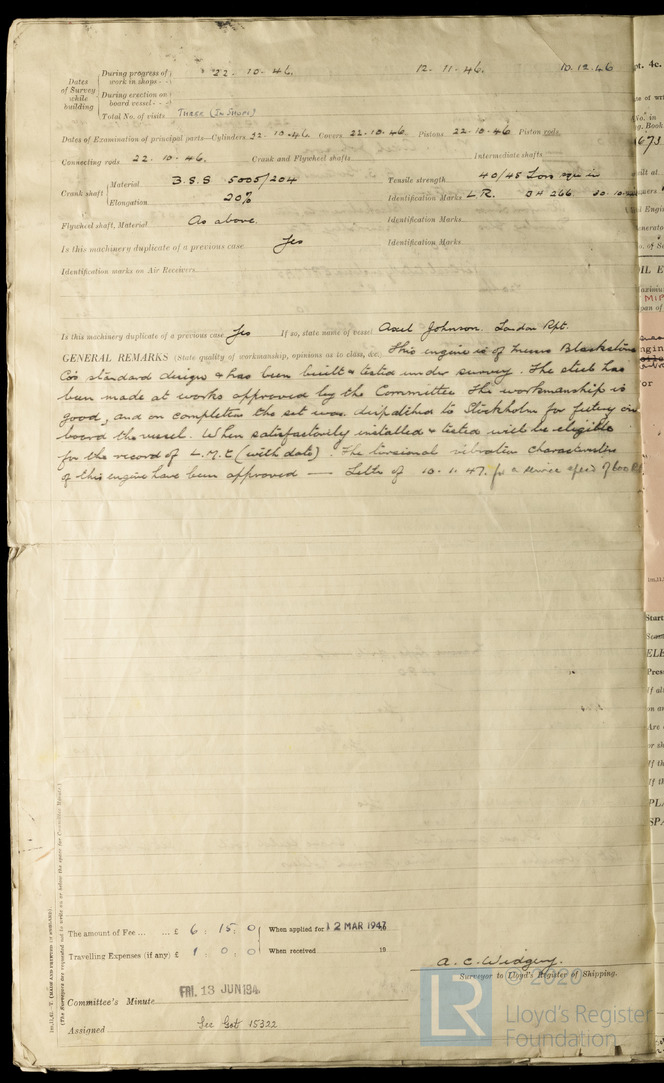 Dates of Survey while building
During progress of work in shops - - 22 - 10 - 46. 12 . 11 . 46. 10 . 12 . 46
During erection on board vessel - - -
Total No. of visits Three (In Shops)
Dates of Examination of principal parts—Cylinders 22 . 10 . 46. Covers 22-10-46. Pistons 22 - 10 . 46 Piston rods
Connecting rods 22 . 10 . 46. Crank and Flywheel shafts Intermediate shafts
Crank shaft Material B.S.S 5005/204 Tensile strength 40/45 Tons sqr in
Elongation 20% Identification Marks L.R.
Flywheel shaft, Material As above. Identification Marks
Is this machinery duplicate of a previous case Yes Identification Marks
Identification marks on Air Receivers
Is this machinery duplicate of a previous case Yes If so, state name of vessel Axel Johnson. London Rpt.
GENERAL REMARKS (State quality of workmanship, opinions as to class, &c. This engine is of Messrs Blackstone
Co's standard design & has been built & tested under survey. The steel has
been made at works approved by the Committee The workmanship is
good, and on completion the set was dispatched to Stockholm for fitting on
board the vessel. When satisfactorily installed & tested will be eligible
for the record of L.M.C (with date). The torsional vibration characteristics
of this engine have been approved — Letter of 10.1.47. for a service speed of 600
The amount of Fee ... ... £ 6 : 15 : 0 When applied for 12 MAR 1947
Travelling Expenses (if any) £ 1 : 0 : 0 When received 19
A. C. Widgery.
Surveyor to Lloyd's Register of Shipping.
Committee's Minute FRI. 13 JUN 194
Assigned See Got 15322
(The Surveyors are requested not to write on or below the space for Committee Minute.)
© 2020
LR
Lloyd's Register
Foundation